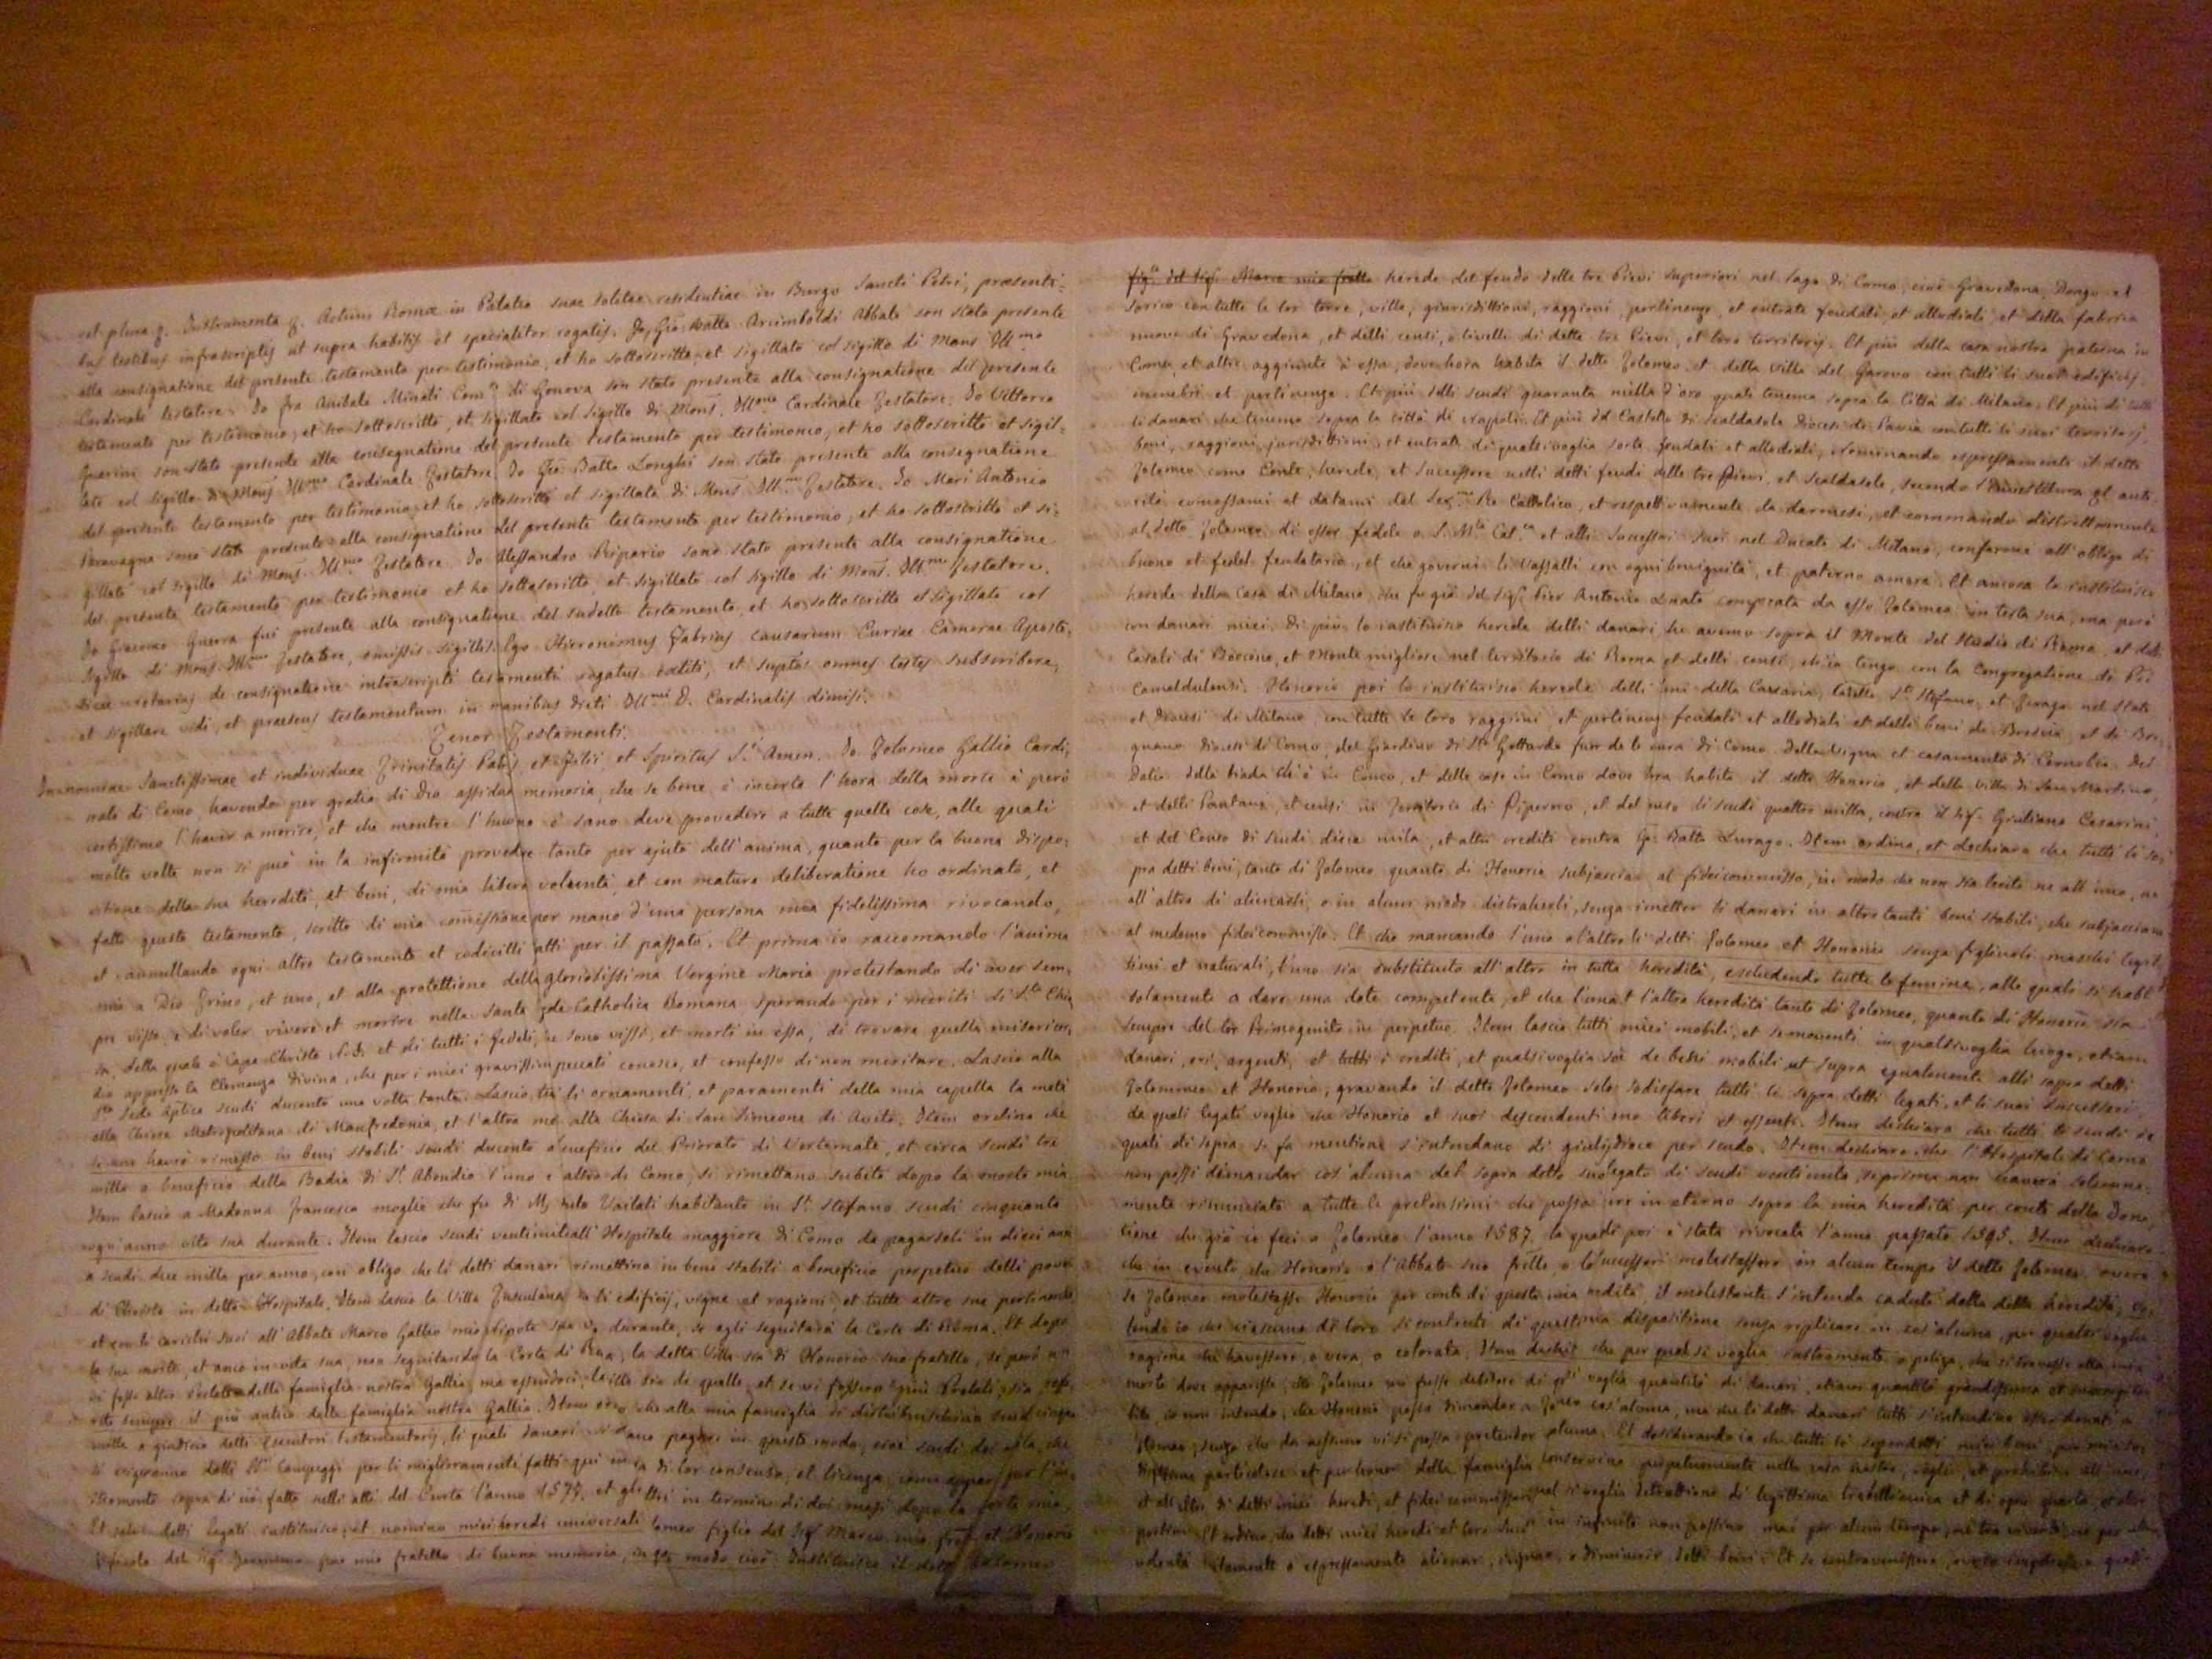 vel plura q. Instrumenta q. Actum Romae in Palatio suae solitae residentiae in Burgo Sancti Petri, praesenti=
bus testibus infrascriptis ut supra habitis et specialiter rogatis. Io, Gio: Batta Arcimboldi Abbate son stato presente
alla consignatione del presente testamento per testimonio, et ho sottoscritto et sigillato col sigillo di Mons. Ill.mo
Cardinale testatore. Io fra Anibale Minali di Genova son stato presente alla consignatione del presente
testamento per testimonio, et ho sottoscritto, et sigillato col sigillo di Mons. Ill.mo Cardinale Testatore. Io Vittorio
Guarini son stato presente alla consegnatione del presente testamento per testimonio, et ho sottoscritto et sigil=
lato col sigillo di Mons. Ill.mo Cardinale Testatore. Io Gio: Batta Longhi son stato presente alla consignatione
del presente testamento per testimonio, et ho sottoscritto et sigillato di Mons. Ill.mo Testatore. Io Mari Antonio
Paravagna sono stato presente alla consignatione del presente testamento per testimonio, et ho sottoscritto et si=
gillato col sigillo di Mons. Ill.mo Testatore. Io Alessandro Ripario sono stato presente alla consignatione
del presente testamento per testimonio et ho sottoscritto, et sigillato col sigillo di Mons. Ill.mo Testatore.
Io Giacomo Guerra fui presente alla consignatione del sudetto testamento, et ho sottoscritto et sigillato col
sigillo di Mons. Ill.mo Testatore, omissis sigillis. Ego Hieronimus Fabrius causarum Curiae Camerae Aposto=
licae notarius de consignatione introscripti testamenti rogatus extiti, et testes subscribere,
et sigillare vidi, et praesens testamentum in manibus dicti Ill.mi D. Cardinalis dimisi.
Tenor Testamenti.
In nomine Sanctissimae et individuae Trinitatis Patris, et Filii et Spiritus S.ti Amen. Io Tolomeo Gallio Cardi,
nale di Como, havendo per gratia di Dio assidua memoria, che se bene è incerta l'hora della morte è però
certissimo l'haver a morire, et che mentre l'huomo è sano deve provedere a tutte quelle cose, alle quali
molte volte non si può in la infirmità provedre tanto per ajuto dell'anima, quanto per la buona dispo=
sitione della sua heredità, et beni, di mia libera volontà, et con matura deliberatione ho ordinato, et
fatto questo testamento, scritto di mia comissione per mano d'una persona mia fidelissima rivocando,
et annullando ogni altro testamento et codicilli fatti per il passato. Et prima io raccomando l'anima
mia a Dio Trino, et uno, et alla protettione della gloriosissima Vergine Maria protestando di aver sem,
pre visso, e di voler vivere et morire nella Santa fede Catholica Romana, sperando per i meriti di
della quale è Capo Christo N.S. et di tutti i fedeli, sono vissi, et morti in essa, di trovare quella misericor,
dia appresso la Clemenza Divina, che per i miei gravissimi peccati conosco, et confesso di non meritare. Lascio alla
scudi ducento una volta tanto. Lascio li ornamenti, et paramenti della mia capella la metà
alla Chiesa Metropolitana di Manfredonia, et l'altra metà alla Chiesa di San Simeone di Avito. Item ordino che
se non havrò rimesso in beni stabili scudi ducento a beneficio del Priorato di Vertemate, et circa scudi tre
milla a beneficio della Badia di S.t Abondio l'uno e altro di Como, si rimettano subito dopo la morte mia.
Item lascio a Madonna Francesca moglie che fu di Vailati habitante in S.t Stefano scudi cinquanta
ogni anno vita sua durante. Item lascio scudi ventimila all'Hospitale maggiore di Como da pagarseli in dieci anni
a scudi due milla per anno, con obligo che li detti danari rimettino in beni stabili a beneficio perpetuo delli poveri
di Christo in detto Hospitale. Item lascio la Villa Tusculana li edificij, vigne et ragioni, et tutte altre sue pertinenze
et con li carichi suoi all'Abbate Marco Gallio mio Nipote sua durante, se egli seguitarà la Corte di Roma. Et dopo
la sua morte, et anco in vita sua, non seguitando la Corte di Roma, la detta Villa sia di Honorio suo fratello, se però non
vi fosse altro Prelato della famiglia nostra Gallia, ma essendovi, la Villa sia di quello, et se vi fossero più Prelati, sia
sempre il più antico della famiglia nostra Gallia. Item che alla mia famiglia si distribuischino scudi cinque
milla a giudicio delli Esecutori testamentarij, li quali danari si pagare in questo modo, cioè scudi doi milla, che
si exigeranno dalli Campeggi per li miglioramenti fatti di lor consenso, et licenza, come per l'in=
stromento sopra di ciò fatto nelli atti del Curto l'anno 1577. et gl'altri in termine di doi mesi dopo la morte mia.
Et salvi detti legati instituisco, et nomino miei heredi universali figlio del Sig.r Marco mio et Honorio
del Sig.r pur mio fratello di buona memoria, in modo cioè. Instituisco il detto Tolomeo
del Sig.r Marco mio fratello herede del feudo delle tre Pievi superiori nel Lago di Como, cioè Gravedona, Dongo et
Sorico con tutte le lor terre, ville, giurisdittioni, raggioni, pertinenze, et entrate feudali, et allodiali, et della fabrica
nuova di Gravedona, et delli censi, e livelli di dette tre Pievi, et loro territorij. Et più della casa nostra paterna in
Como, et altre aggiunte à essa, dove hora habita il detto Tolomeo, et della villa del Garovo con tutti li suoi edificij
membri et pertinenze. Et più delli scudi quaranta milla d'oro quali tenemo sopra la Città di Milano. Et più di tutti
li danari che tenemo sopra la città di Napoli. Et più del Castello di Scaldasole Diocesi di Pavia con tutti li suoi territorj,
beni, raggioni, jurisdittioni, et entrate di qualsivoglia sorte feudali et allodiali, Nominando espressamente il detto
Tolomeo come Conte, herede, et successore nelli detti feudi delle tre Pievi, et Scaldasole, secondo l'Investitura et auto,
rità concessami et datami dal Ser.mo Re Cattolico, et respettivamente da darmesi, et commando distrettamente
al detto Tolomeo di esser fedele a S. M.tà Cat.ca et alli Successori suoi nel Ducato di Milano, conforme all'obligo di
buono et fedel feudatario, et che governi li Vassalli con ogni benignità, et paterno amore. Et ancora lo instituisco
herede della casa di Milano, che fu già del Sig.r Pier Antonio comprata da esso Tolomeo in testa sua, ma però
con danari miei. Di più lo instituisco herede delli danari che avemo sopra il Monte del Studio di Roma, et delli
Casali di Boccone, et Monte migliore nel territorio di Roma et delli censi, ch'io tengo con la Congregatione di
Camaldulensi. Honorio poi lo instituisco herede delli beni della S.to Stefano, et nel stato
et Diocesi di Milano, con tutte le loro raggioni, et pertinenze feudali et allodiali et delli beni di Brescia, et di
Diocesi di Como, del Giardino di Gottardo fuor de le mura di Como. Della Vigna et casamento di Cernobio. Del
Datio della biada ch'è in Como, et delle case in Como dove hora habita il detto Honorio, et della Villa di San Martino,
et delli Pantani, et censi in Territorio di Piperno, et del censo di scudi quattro milla, contra il Sig.r Giuliano Cesarini,
et del Censo di scudi dieci mila, et altri crediti contra Gio: Batta Lurago. Item ordino, et dechiaro che tutti li so=
pra detti beni, tanto di Tolomeo quanto di Honorio subjaccia al fideicommisso, in modo che non sia lecito ne all'uno, ne
all'altro di alienarli, o in alcun modo distraherli, senza rimetter li danari in altre tanti beni stabili, che subjaccian
al medemo fideicommisso. Et che mancando l'uno o l'altro li detti Tolomeo et Honorio senza figlivoli maschi legit,
timi et naturali, l'uno sia substituito all'altro in tutta heredità, escludendo tutte le femine, alle quali
solamente a dare una dote competente, et che l'una et l'altra heredità tanto di Tolomeo, quanto di Honorio sia
sempre del lor Primogenito in perpetuo. Item lascio tutti miei mobili, et semoventi in qualsivoglia luogo, etiam
danari, ori, argenti, et tutti i crediti, et qualsivoglia de beni mobili ut supra egualmente alli sopra detti
Tolommeo et Honorio, gravando il detto Tolomeo solo sodisfare tutti li sopra detti legati, et li suoi successori,
da quali legati voglio che Honorio et suoi descendenti sino liberi et essenti. Item dechiaro che tutti li scudi de
quali di sopra si fa mentione s'intendano di giulij dieci per scudo. Item dechiaro che l'Hospitale di Como
non possi dimandar cos'alcuna del sopra detto suo legato di scudi venti mila, se prima non haverà solenne=
mente rinunciato a tutte le pretensioni che possa in eterno sopra la mia heredità per conto della Dona,
tione che già io feci a Tolomeo l'anno 1587. la quale poi è stata rivocata l'anno passato 1595. Item dechiaro
che in evento che Honorio o l'Abbate suo o successori molestassero in alcun tempo il detto Tolomeo, overo
se Tolomeo molestasse Honorio per conto di questa mia heredità, il molestante s'intenda caduto dalla detta heredità, vo=
lendo io che ciascuno di loro si contenti di questa mia dispositione senza replicare in cos'alcuna, per qualsivoglia
ragione che havessero, o vera, o colorata. Item che per qual si voglia instromento, o poliza, che si trovasse alla mia
morte dove apparisse, che Tolomeo mi fusse debitore di voglia quantità di danari, etiam quantità grandissima et
io non intendo, che Honorio possa dimandar a cos'alcuna, ma che li detti danari tutti s'intendino esser donati a
Tolomeo, senza che da nessuno vi si possa pretender alcuna. Et desiderando io che tutti li sopradetti miei beni
particolare et per honor della famiglia conservino perpetuamente nella casa nostra, voglio, et prohibisco
et all'altro di detti miei heredi, et fidei commissari qual si voglia detrattione di legittima trebellianica et di ogni quarta,
Et ordino, che detti miei heredi et loro in infinito non possino mai per alcun tempo,
volontà tacitamente o espressamente alienar, o diminuir detti beni. Et se contravenissero,